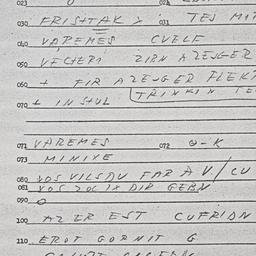 023
030 FRISTTAK > 031 TES MIT
040 VAPEMES CVELF
050 VECHERI ZIRN AZENGER
060 + FIR AZENGER FLEKT
070 + IN STUL TRINKIN TE
071 VAREMES 072 O-K
073 MINIYE
080 VOS VILSDU FAR A V./CU
081 VOS ZOL IX DIR GEBN
090 O
100 AZ ER EST CUFRIDN
110 EROT GORNIT G